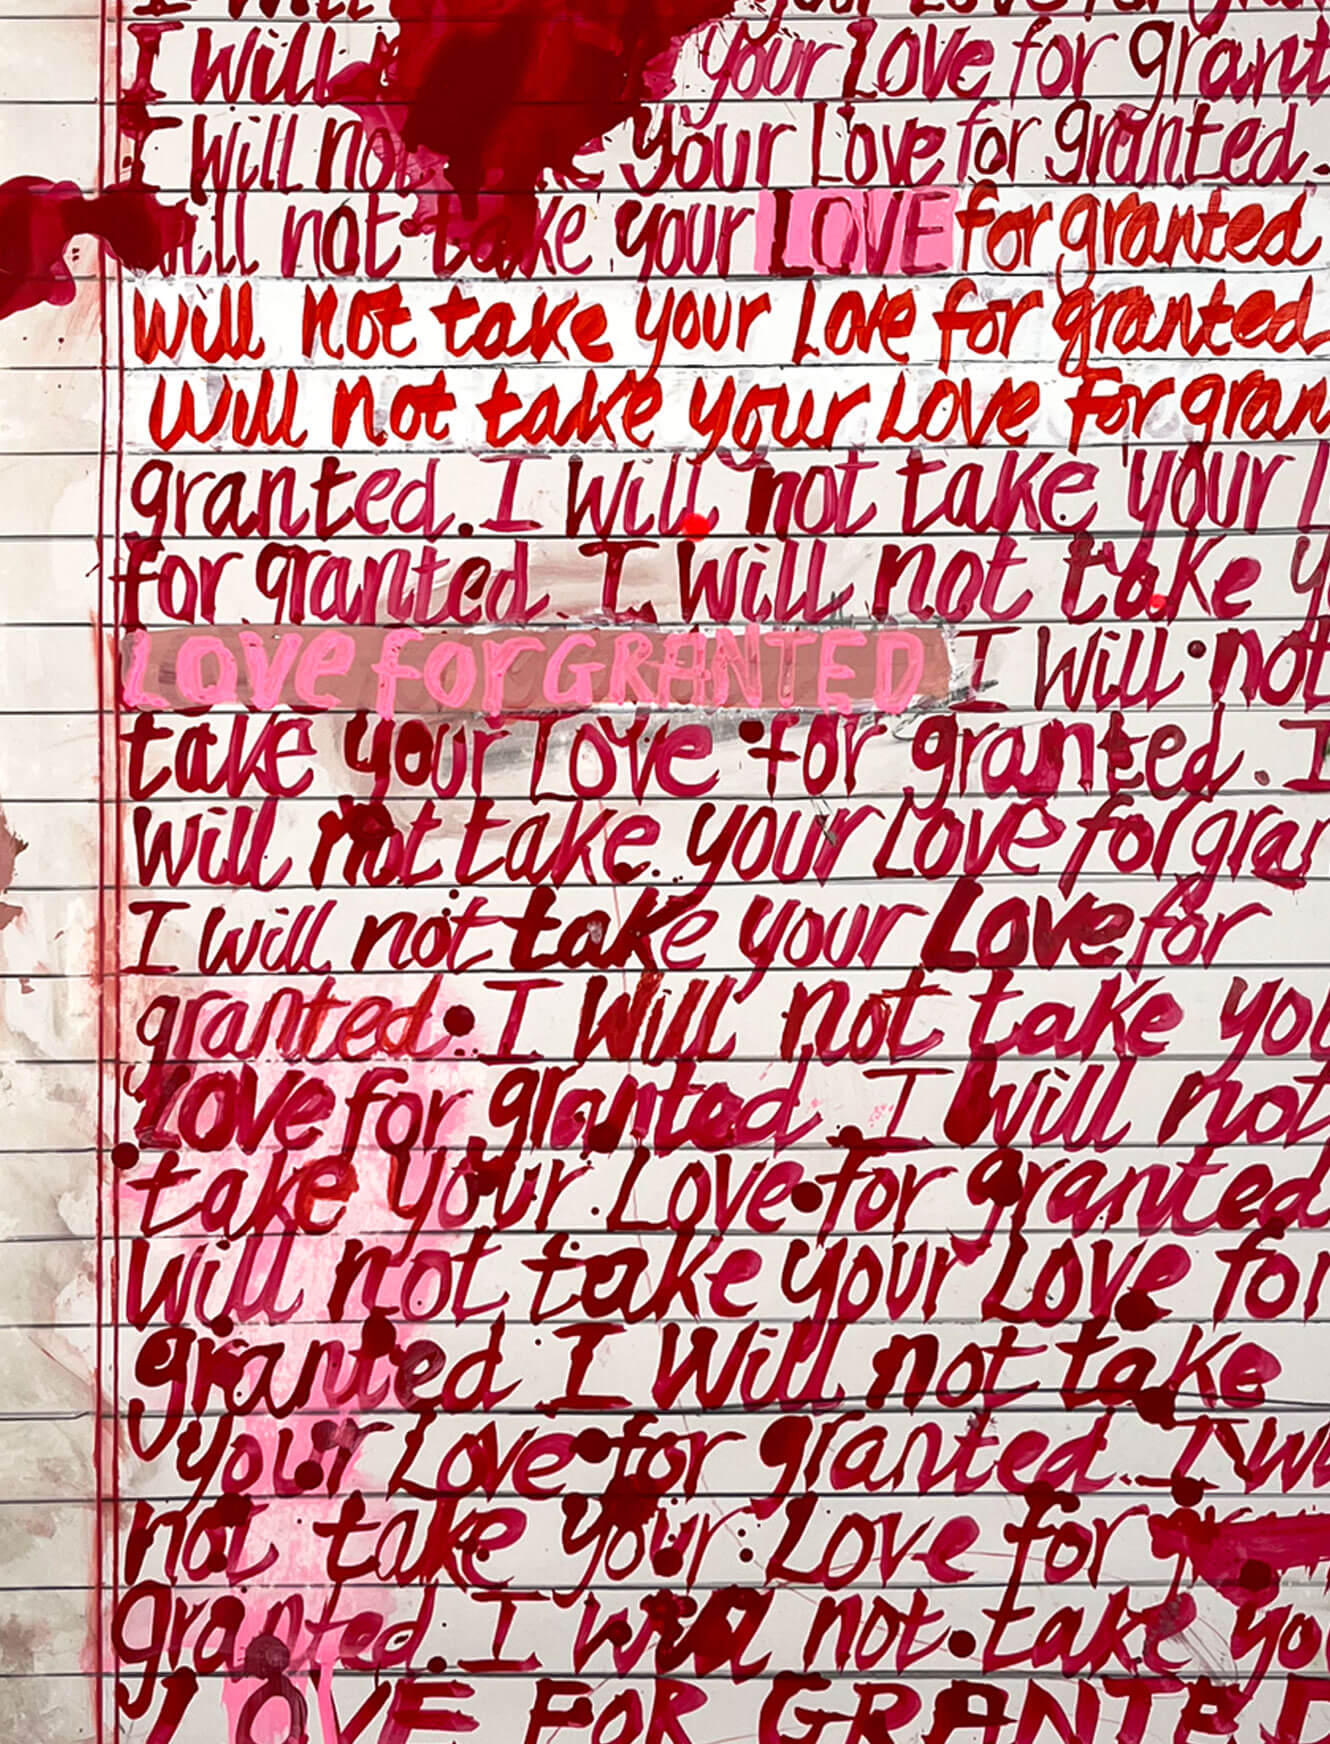 I will your Love for gran
I will your Love for grant
I will not your Love for granted.
will not take your LOVE for granted
will not take your Love for granted
will not take your Love for gran
granted. I will not take your L
for granted. I will not take y
Love for GRANTED I will not
take your Love for granted. I
will not take your Love for gran
I will not take your Love for
granted. I will not take you
Love for granted. I will not
take your Love for granted
will not take your Love for
granted I will not take
your Love for granted. I wi
not take your Love for
granted. I will not take you
LOVE FOR GRANTED